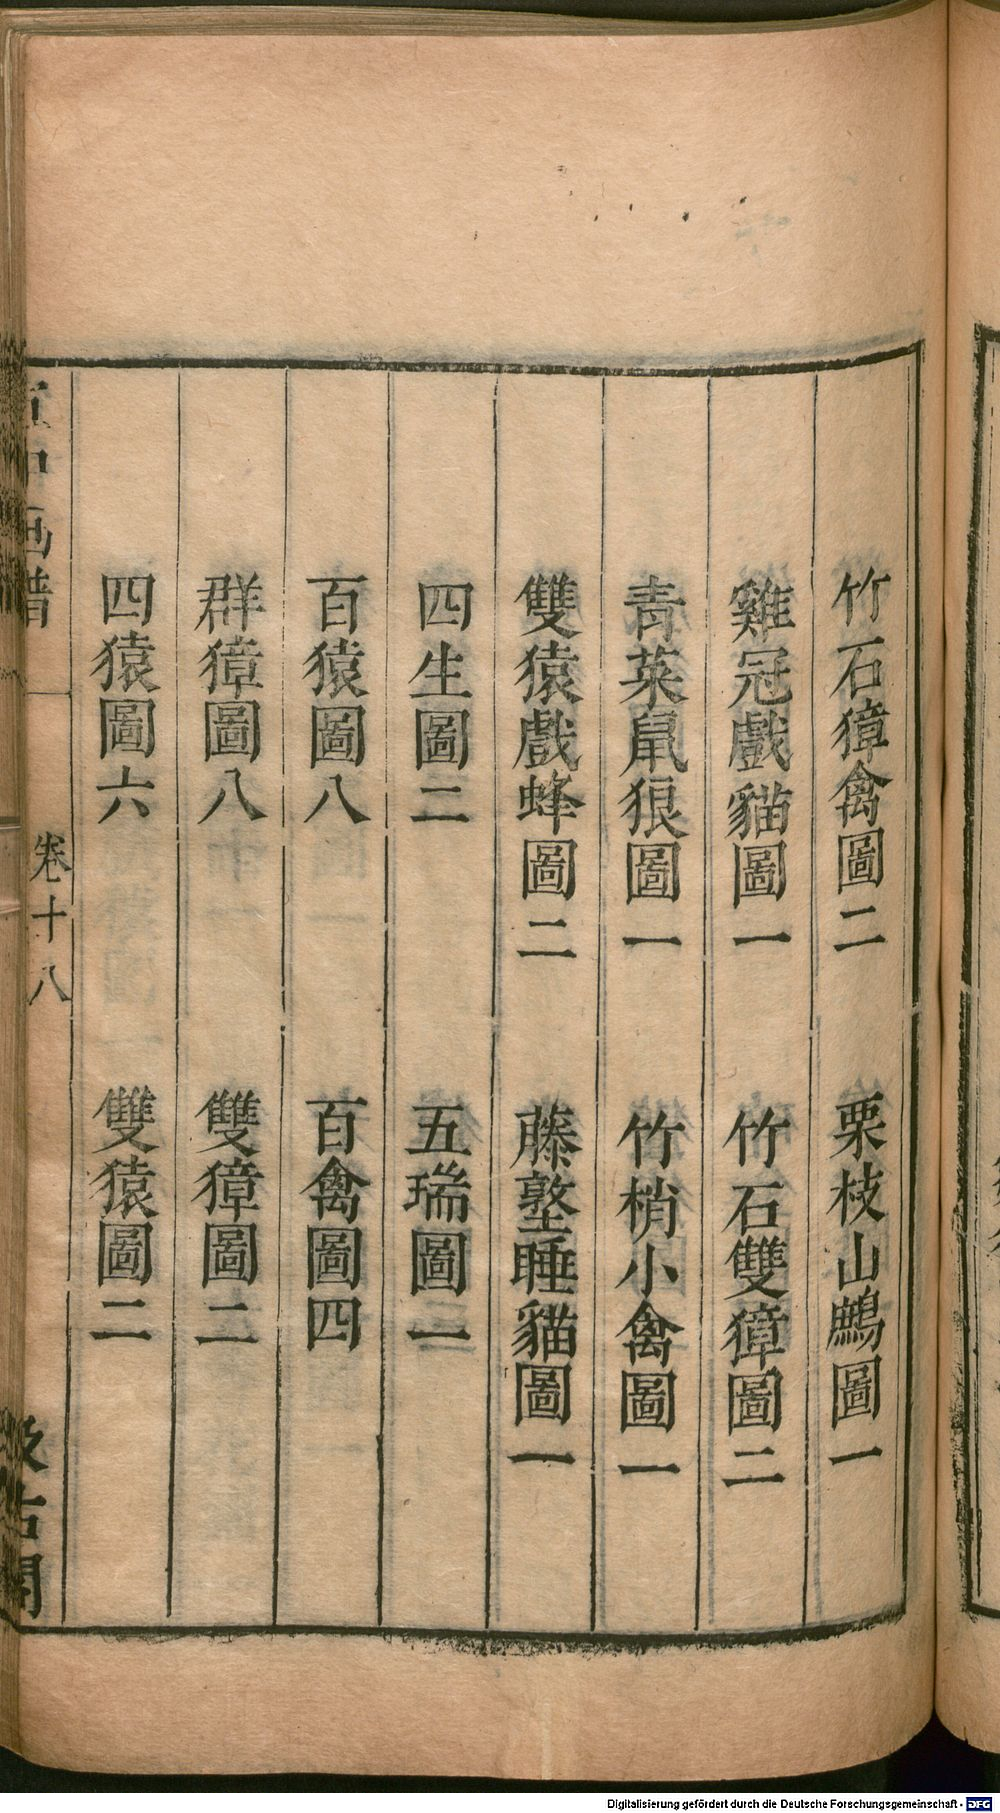 竹石獐禽圖二　栗枝山鷓圖一
雞冠戲貓圖一　竹石雙獐圖二
青菜鼠狼圖一　竹梢小禽圖一
雙猿戲蜂圖二　藤墪睡貓圖一
四生圖二　五瑞圖二
百猿圖八　百禽圖四
群獐圖八　雙獐圖二
四猿圖六　雙猿圖二
畫譜　卷十八　汲古閣
Digitalisierung gefördert durch die Deutsche Forschungsgemeinschaft - DFG